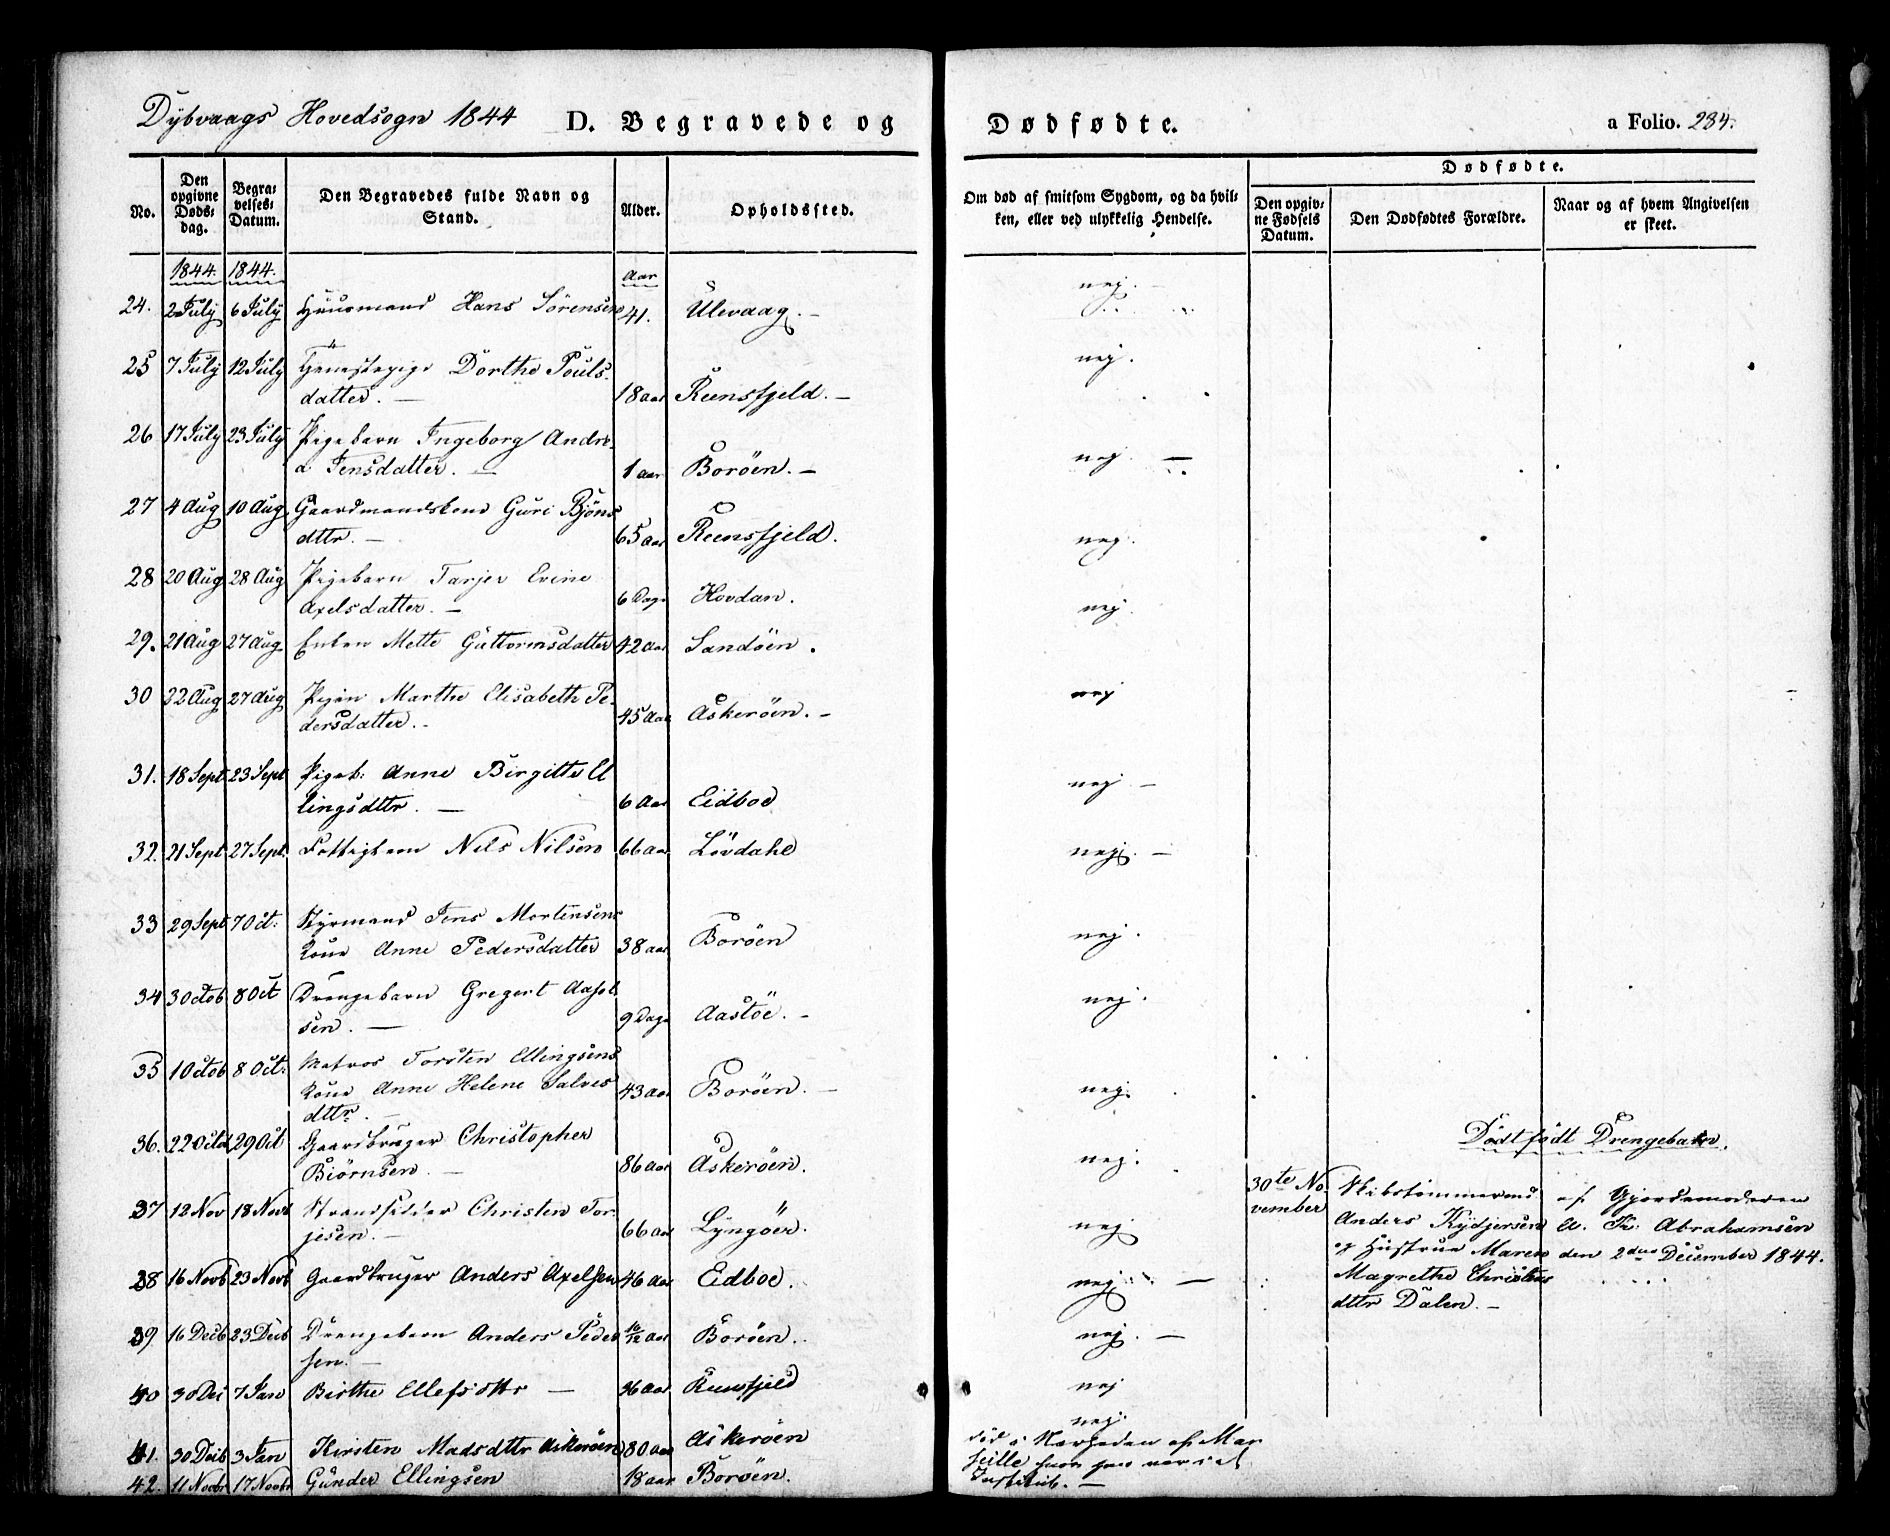 Dybvaags Hovedsogn 1844 D. Begravede og Dødfødte. a Folio. 284.
No. Den opgivne Døds-dag. Begra-velses-Datum. Den Begravedes fulde Navn og Stand. Alder. Opholdssted. Om død af smitsom Sygdom, og da hvil-ken, eller ved ulykkelig Hendelse. Dødfødte.
Den opgiv-ne Fødsels Datum. Den Dødfødtes Forældre. Naar og af hvem Angivelsen er skeet.
1844. 1844. Aar
24. 2 July 6 July Huusmand Hans Sörensen 41. Ulevaag. – nej. –
25 7 July 12 July Tjenestepige Dorthe Pouls-
datter. – 18 aar Reensfjeld. – nej.
26 17 July 23 July Pigebarn Ingeborg Andre-
a Jensdatter. – 1 aar Boröen. – nej. –
27 4 Aug 10 Aug Gaardmandskone Guri Bjöns
dttr. – 65 aar Reensfjeld. nej.
28 20 Aug 28 Aug Pigebarn Tarjer Evine
Axelsdatter. – 6 Dage Hovdan. nej.
29. 21 Aug 27 Aug Enken Mette Guttormsdatter 42 aar Sandöen.
30 22 Aug 27 Aug Pigen Marthe Elisabeth Pe-
dersdatter. – 45 Aar Askeröen. – nej
31. 18 Sept 23 Sept Pigeb: Anne Birgitte El
lingsdttr. – 6 Aar Eidboe nej –
32. 21 Sept 27 Sept. Fattiglem Nels Nilsen 66 aar Lövdahl nej. –
33 29 Sept 7 Oct. Styrmand Jens Mortensens
Kone Anne Pedersdatter 38 aar Boröen nej.
34 3 Octob 8 Oct Drengebarn Gregert
sen. – 9 Dage Aastöe. – nej.
35 1 Octob 8 Oct. Matros Torsten Ellingsens
Kone Anne Helene Salves
dttr. – 43 aar Boröen. – nej.
36. 22 Octob 29 Oct Gaardbruger Christopher
Biörnsen. – 86 aar Askeröen. nej.
Dödtfödt Drengebarn.
37 12 Nov 18 Novb Strandsidder Christen Tor-
jesen. – 66 aar Lyngöer. nej
30te No-
vember
Skibstömmermd
Anders Kydjersen
og Hustrue Maren
Magrethe Christens
dttr Dalen. –
af Gjordemoderen
A. Kr: Abrahamsen
den 2den December 1844.
38 16 Novb 23 Novb Gaardbruger Anders Axelsen 46 aar Eidboe. nej. –
39 16 Decb 23 Decb Drengebarn Anders Peder
sen. – 10/12 aar Boröen. nej. –
40 30 Dec 7 Jan Birthe Ellefsdttr – 36 aar Reensfjeld nej
41. 30 Decb 3 Jan Kirsten Madsdttr Askeröen 80 aar Askeröen nej.
42. 11 Novbr 17 Novbr Gunder Ellingsen 18 aar Boröen.
död i Nærheden af Mar
seille